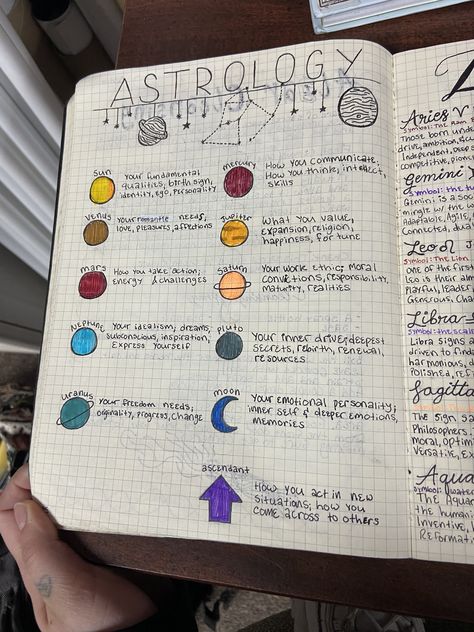 ASTROLOGY
Sun
Your fundamental
qualities, birth sign,
identity, ego, personality
mercury
How you communicate,
How you think, intellect,
skills
Venus
Your romantic needs,
love, pleasures, affections
Jupiter
What you value,
expansion, religion,
happiness, fortune
mars
How you take action;
energy & challenges
Saturn
Your work ethic; moral
convictions, responsibility,
maturity, realities
Neptune
Your idealism; dreams,
subconscious, inspiration,
Express yourself
pluto
Your inner drive; deepest
secrets, rebirth, renewal,
resources
uranus
Your freedom needs;
originality, progress, change
moon
Your emotional personality;
inner self & deeper emotions,
memories
ascendant
How you act in new
situations; how you
come across to others
Aries
Symbol: The Ram
Those born under
drive, ambition,
Independent,
competitive,
Gemini
Symbol: the
Gemini is a
mingle w/ the
Adaptable,
Connected,
Leo
Symbol: The Lion
One of the first
Leo is their
Playful, leader
Generous,
Libra
Symbol: the
Libra signs
driven to
harmonious,
Polished,
Sagitta
The sign
Philosophers,
moral,
Versatile,
Aqua
Symbol:
The
the
Inventive,